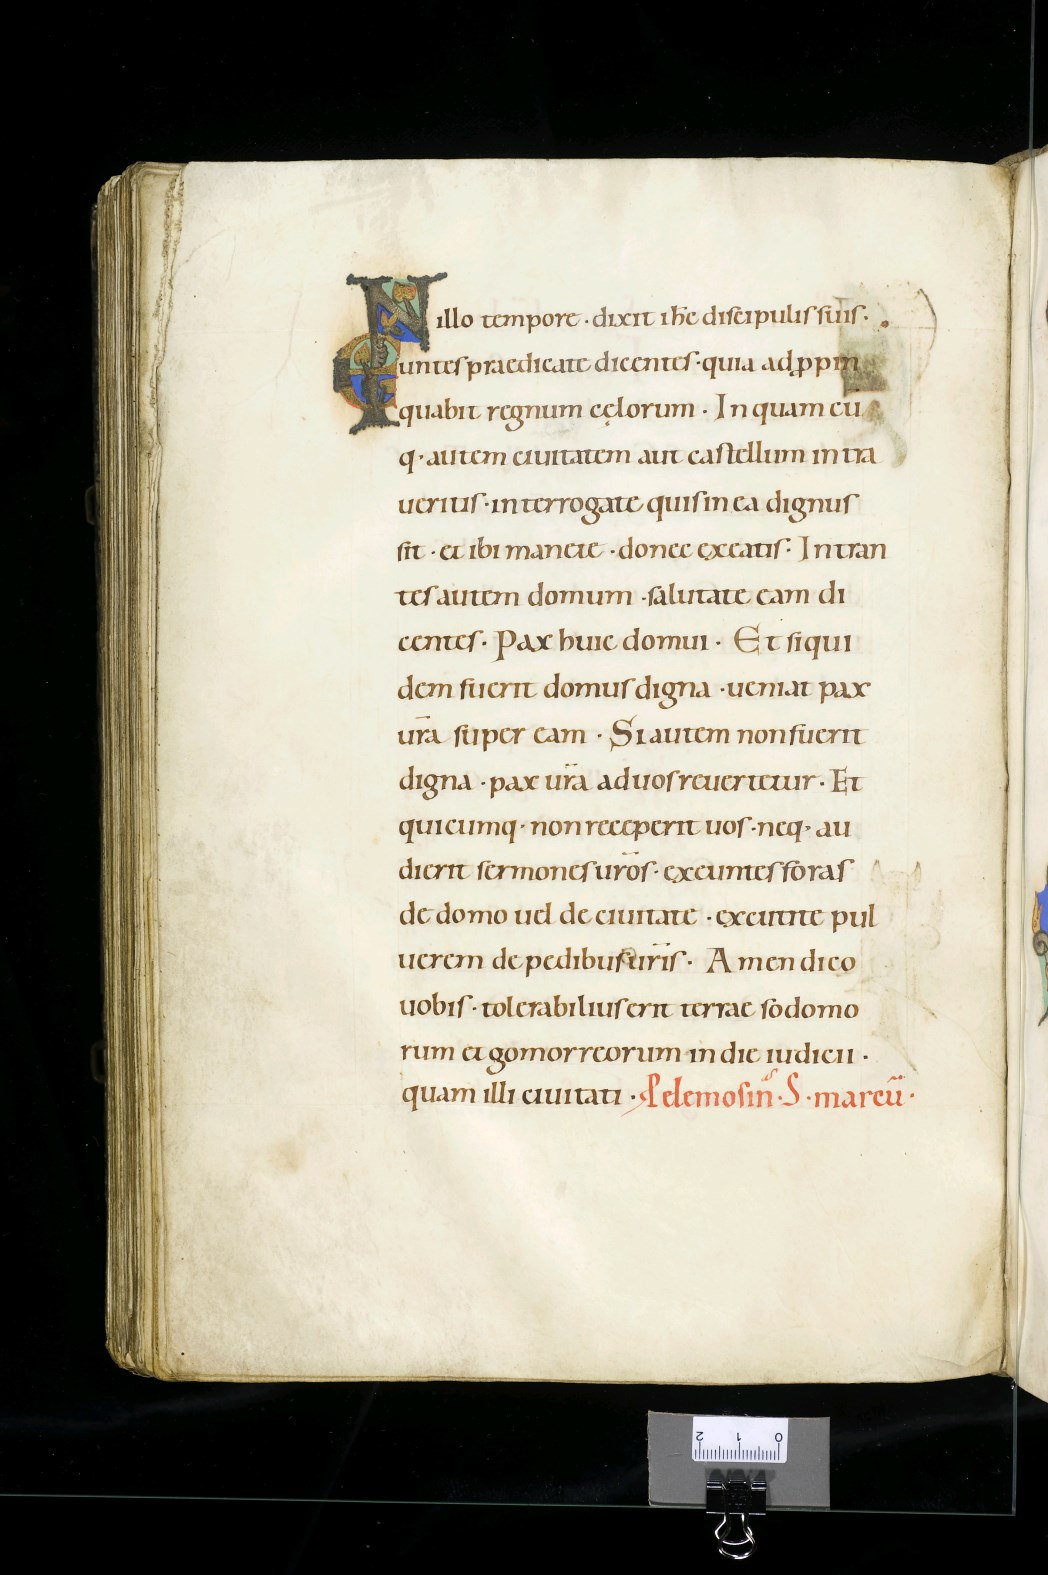 IN illo tempore · dixit ihc discipulis suis ·
E untes praedicate dicentes · quia adppin
quabit regnum cęlorum · In quam cū
q· autem ciuitatem aut castellum intra
ueritis · interrogate quis in ea dignus
sit · et ibi manete · donec exeatis · Intran
tes autem domum · salutate eam di
centes · Pax huic domui · Et siqui
dem fuerit domus digna · ueniat pax
ur̄a super eam · Si autem non fuerit
digna · pax ur̄a ad uos reuertetur · Et
quicumq· non receperit uos · neq· au
dierit sermones uros̄ · exeuntes foras
de domo uel de ciuitate · excutite pul
uerem de pedibus uris̄ · Amen dico
uobis · tolerabilius erit terrae sodomo
rum et gomorreorum in die iudicii ·
quam illi ciuitati · P elemosin̄ · S · marcū ·
2 1 0